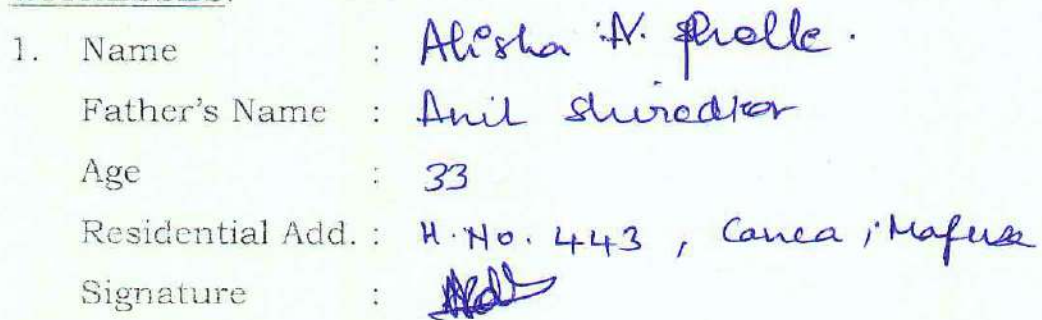 1. Name : Alisha N.
Father's Name : Anil Shirodkar
Age : 33
Residential Add. : H.No. 443, Canca, Mafusa
Signature :